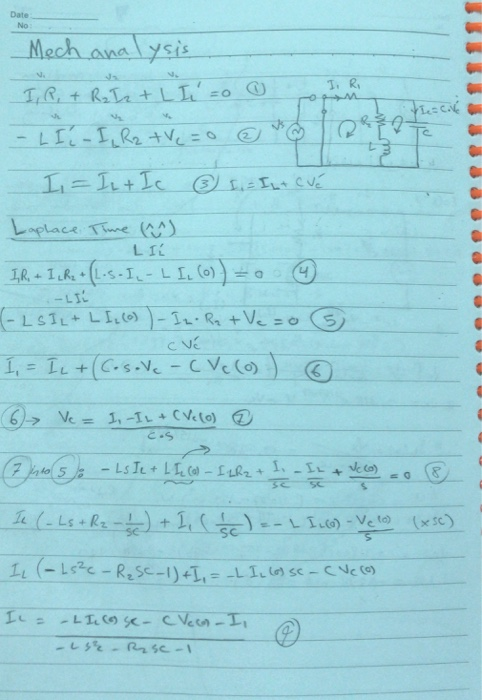 Date
No
Mech analysis
V₁ V₂ V₃
I₁R₁ + R₂I₂ + L I_L' = 0 ①
- L I_L' - I_L R₂ + V_C = 0 ②
I₁ = I_L + I_C ③ I₁ = I_L + C V_C'
I₁ R₁
I_C = C.V_C'
R₂
C
L
Laplace Time (^^)
L I_L'
I₁R₁ + I_L R₂ + (L.S.I_L - L I_L(0)) = 0 ④
-L I_L'
(- L S I_L + L I_L(0)) - I_L . R₂ + V_C = 0 ⑤
C V_C'
I₁ = I_L + (C.S.V_C - C V_C(0)) ⑥
⑥ → V_C = I₁ - I_L + C V_C(0) / C.S ⑦
⑦ into ⑤: - L S I_L + L I_L(0) - I_L R₂ + I₁/SC - I_L/SC + V_C(0)/S = 0 ⑧
I_L (- L S + R₂ - 1/SC) + I₁ (1/SC) = - L I_L(0) - V_C(0)/S (x SC)
I_L (- L S² C - R₂ S C - 1) + I₁ = - L I_L(0) SC - C V_C(0)
I_L = - L I_L(0) SC - C V_C(0) - I₁ / - L S² C - R₂ S C - 1 ⑨